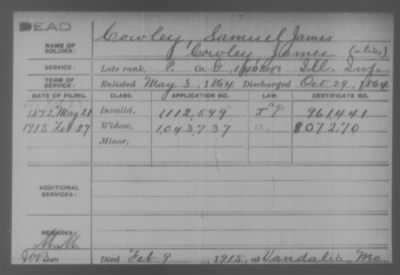 DEAD
NAME OF SOLDIER: Cowley, Samuel James
" Cowley James (alias)
SERVICE: Late rank, P. Co. G, Ill. Inf.
TERM OF SERVICE: Enlisted May 3, 1864 Discharged Oct 29, 1864
DATE OF FILING. CLASS. APPLICATION NO. LAW. CERTIFICATE NO.
1892 May 21 Invalid, 1112,599 961441
1915 Feb 27 Widow, 1043,737 807270
Minor,
ADDITIONAL SERVICES:
REMARKS:
Died Feb 9, 1915, at Vandalia, Mo